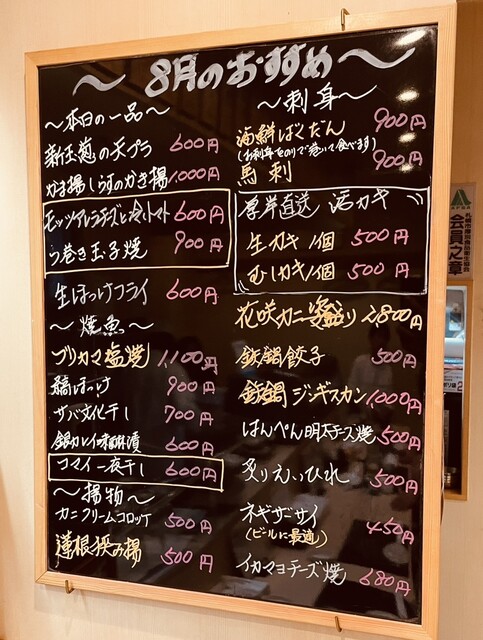 〜8月のおすすめ〜
〜本日の一品〜
新玉葱の天プラ 600円
かま揚しらすのかき揚 1,000円
モッツアレラチーズと冷トマト 600円
う巻き玉子焼 900円
生ほっけフライ 600円
〜焼魚〜
ブリカマ塩焼 1,100円
縞ほっけ 900円
サバ文化干し 700円
銀カレイ味醂漬 600円
コマイ一夜干し 600円
〜揚物〜
カニクリームコロッケ 500円
蓮根挟み揚 500円
〜刺身〜
海鮮ばくだん 900円
(お刺身をのりで巻いて食べます)
馬刺 900円
厚岸直送 活カキ
生カキ1個 500円
むしカキ1個 500円
花咲カニ姿盛り 2,800円
鉄鍋餃子 500円
鉄鍋ジンギスカン 1,000円
はんぺん明太チーズ焼 500円
炙りえいひれ 500円
ネギザーサイ 450円
(ビールに最適)
イカマヨチーズ焼 680円
会員之章